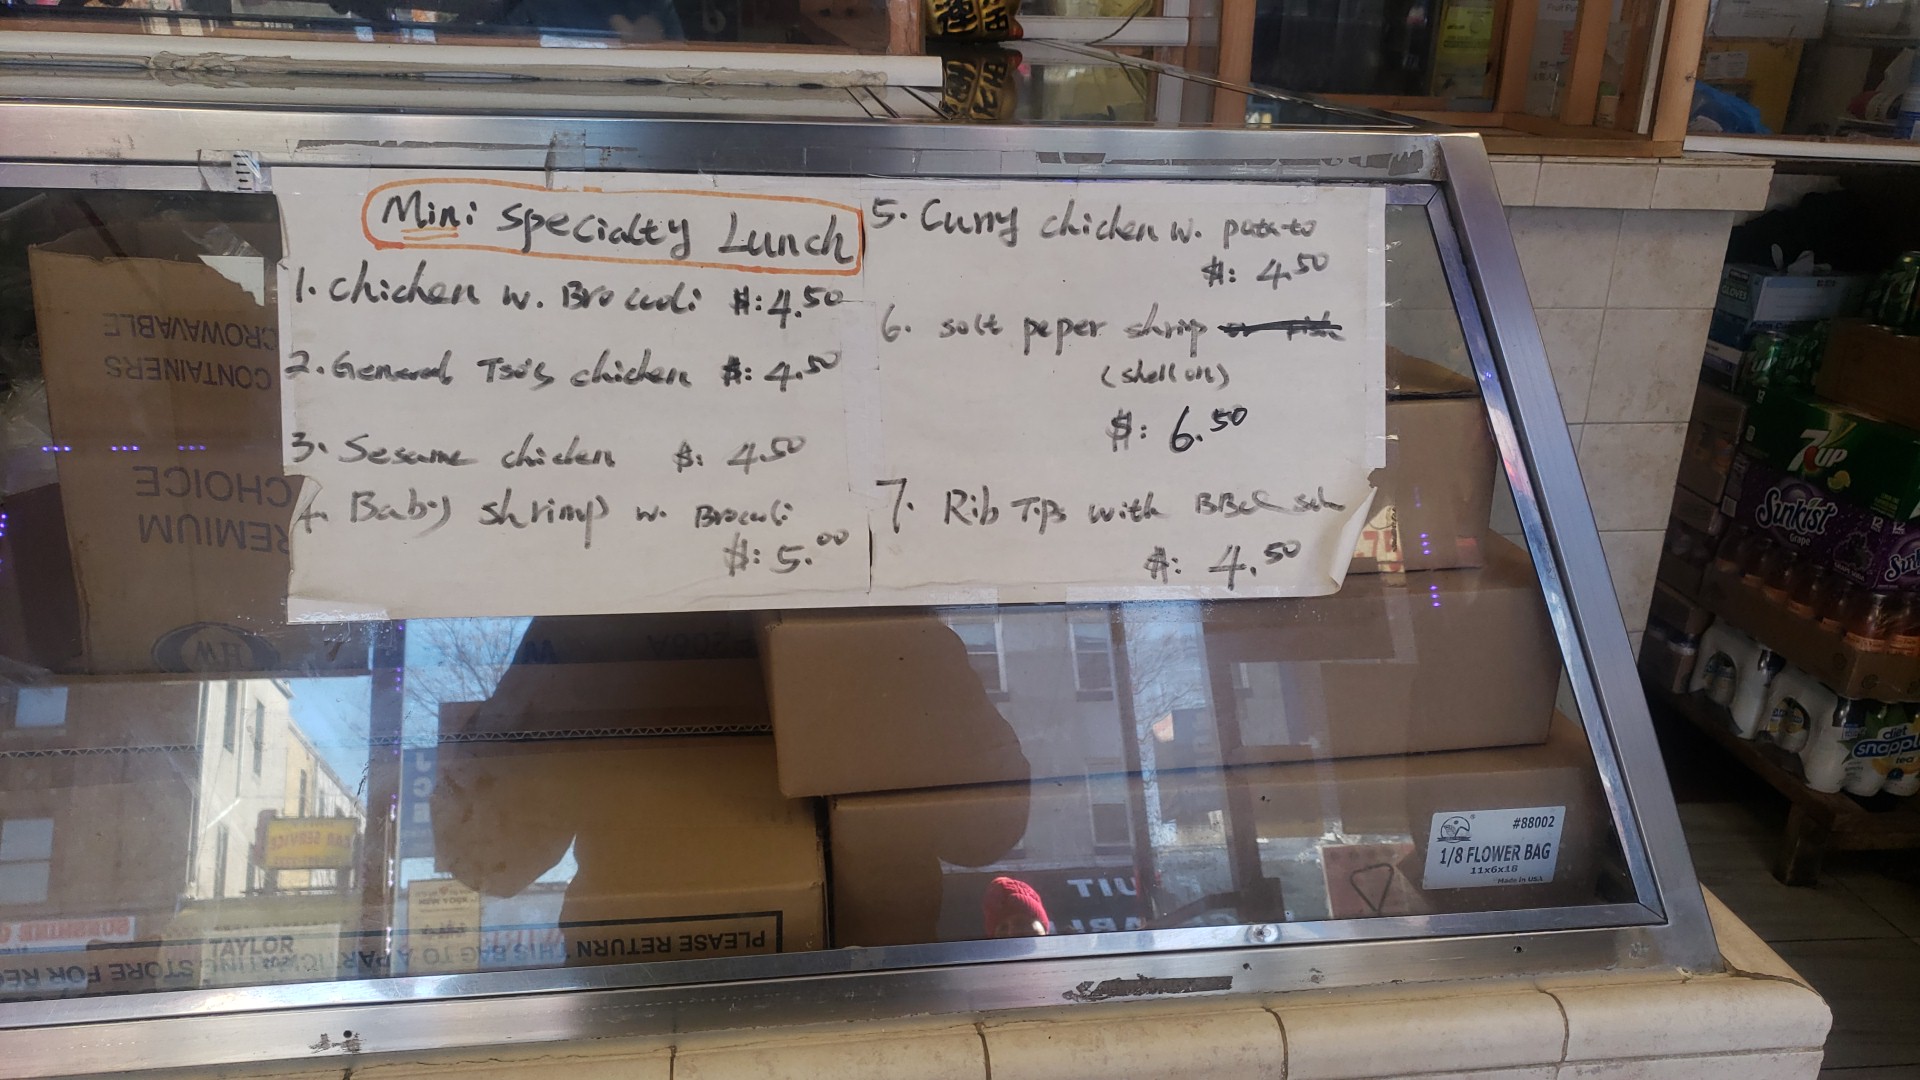 Mini Specialty Lunch
1. chicken w. Broccoli $: 4.50
2. General Tso's chicken $: 4.50
3. Sesame chicken $: 4.50
4. Baby shrimp w. Broccoli
$: 5.00
5. Curry chicken w. potato
$: 4.50
6. salt peper shrimp
(shell on)
$: 6.50
7. Rib Tips with BBQ
$: 4.50
CROWAVABLE
CONTAINERS
CHOICE
REMIUM
HW
PLEASE RETURN THIS BAG TO A PARTICI
STORE FOR RE
TAYLOR
CAR SERVICE
#88002
1/8 FLOWER BAG
11x6x18
Made in U.S.A.
GLOVES
7UP
Sunkist
Grape
Sun
diet
snapple
tea